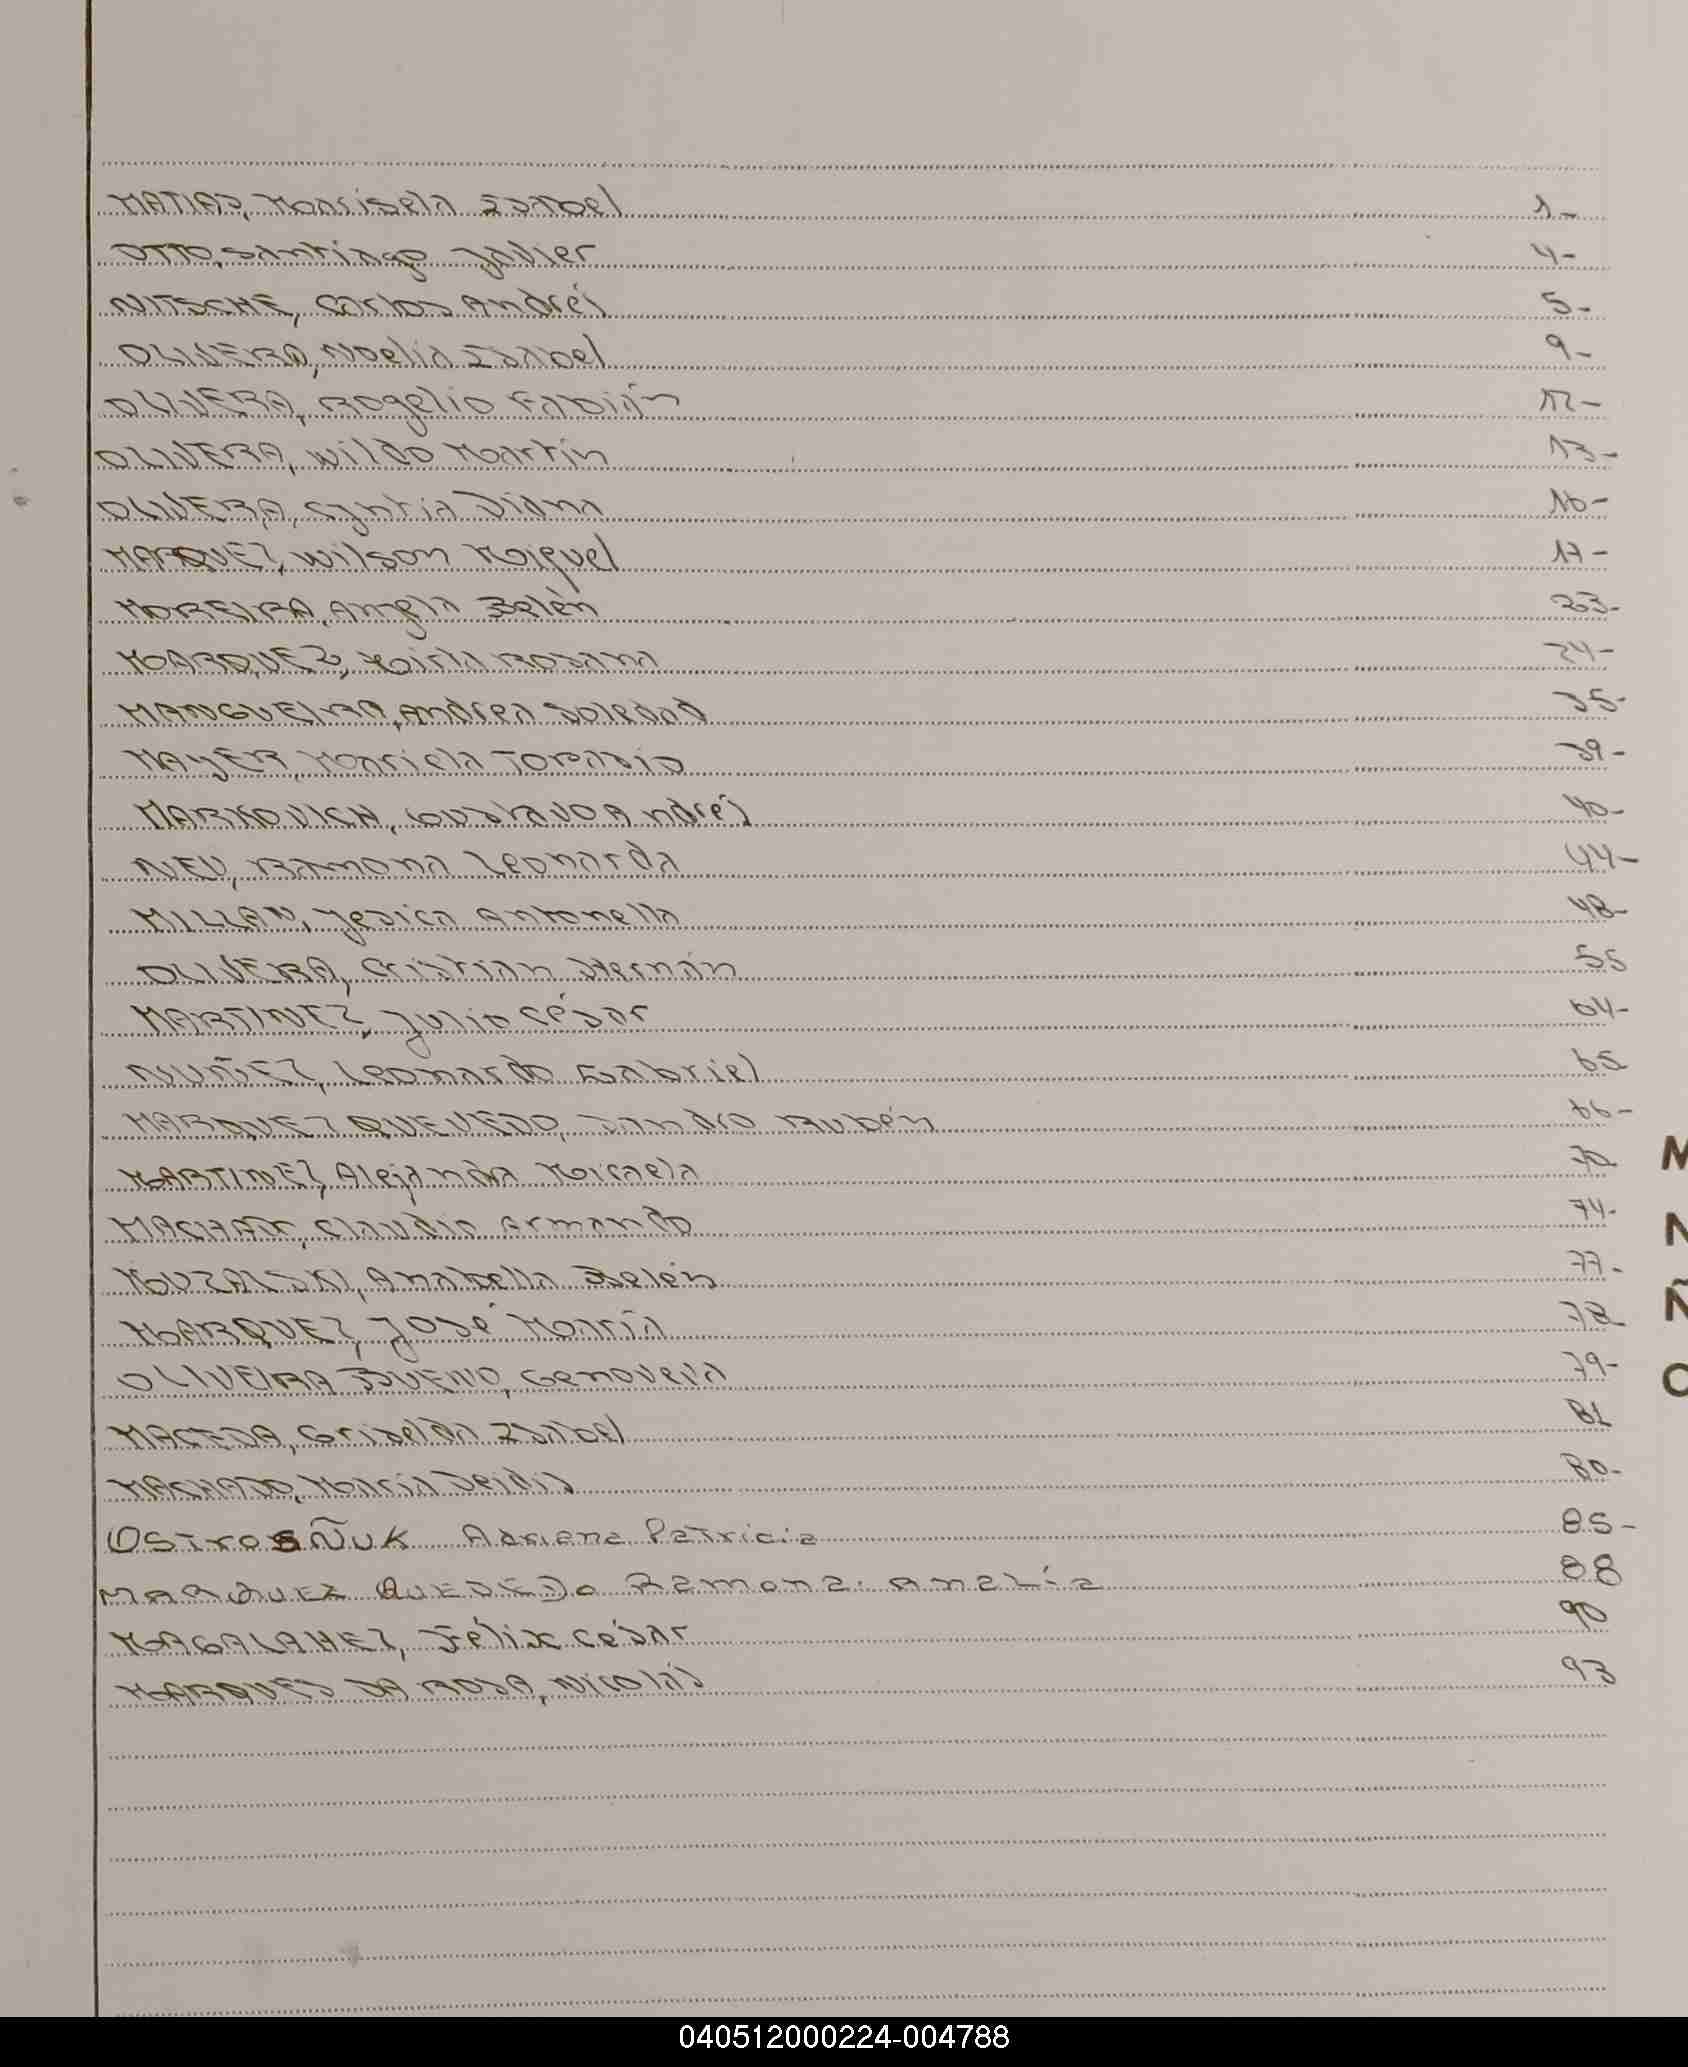 MATIAS, Marisela Isabel 1-
OTTO, Santiago Javier 4-
NITSCHE, Carlos Andrés 5-
OLIVERA, Noelia Isabel 9-
OLIVERA, Rogelio Fabián 12-
OLIVERA, Wildo Martín 13-
OLIVERA, Cyntia Diana 16-
MARQUEZ, Wilson Miguel 17-
MOREIRA, Angela Belén 23-
MARQUEZ, Mirta Rosana 24-
MANGUEIRA, Andrea Soledad 35-
MAYER, Mariela 39-
MARKOVICH, Gustavo Andrés 40-
NEU, Ramona Leonarda 44-
MILLAN, Jesica Antonella 48-
OLIVERA, Cristian Hernán 55
MARTINEZ, Julio César 64-
NUÑEZ, Leonardo Gabriel 65
MARQUEZ QUEVEDO, Sandro Rubén 66-
MARTINEZ, Alejandra Micaela 70
Claudio Armando 74-
Anabella Belén 77-
MARQUEZ, José María 78
OLIVEIRA BUENO, Genoveva 79-
MACEDA, Griselda Isabel 81
MACHADO, María 80-
OSTROSÑUK Adriana Patricia 85-
MARQUEZ QUEVEDO Ramona Analía 88
MAGALAHEZ, Félix César 90
MARQUES DA ROSA, Nicolás 93
M
N
Ñ
O
040512000224-004788